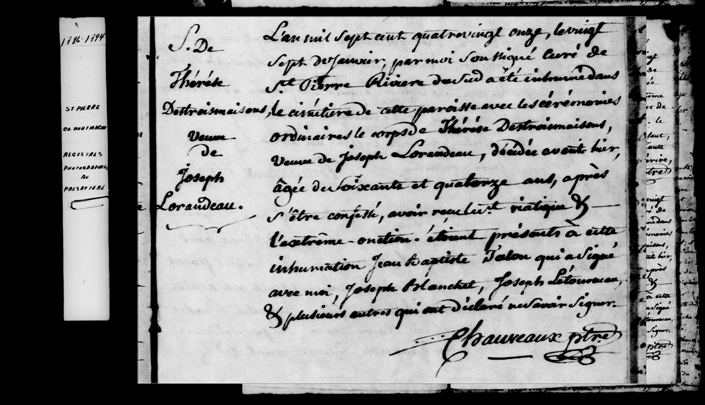 1786-1794
ST PIERRE
CO MONTMAGNY
REGISTRES
PHOTOGRAPHIÉS
AU
PRESBYTERE
S. De
Thérése
Destroismaisons,
Veuve
de
Joseph
Lorandeau.
L'an mil sept cent quatrevingt onze, le vingt
sept de Janvier, par moi soussigné curé de
St. Pierre Riviere du Sud a été inhumé dans
le cimétiere de cette paroisse avec les cérémonies
ordinaires le corps de Thérése Destroismaisons,
Veuve de Joseph Lorandeau, décédée avant hier,
âgée de soixante et quatorze ans, après
s'être confessé, avoir reçu le st. viatique &
l'extrême-onction. étoient présents à cette
inhumation Jean Baptiste Talon qui a signé
avec moi, Joseph Blanchet, Joseph Létourneau,
& plusieurs autres qui ont déclaré ne savoir signer.
Chauveaux ptre